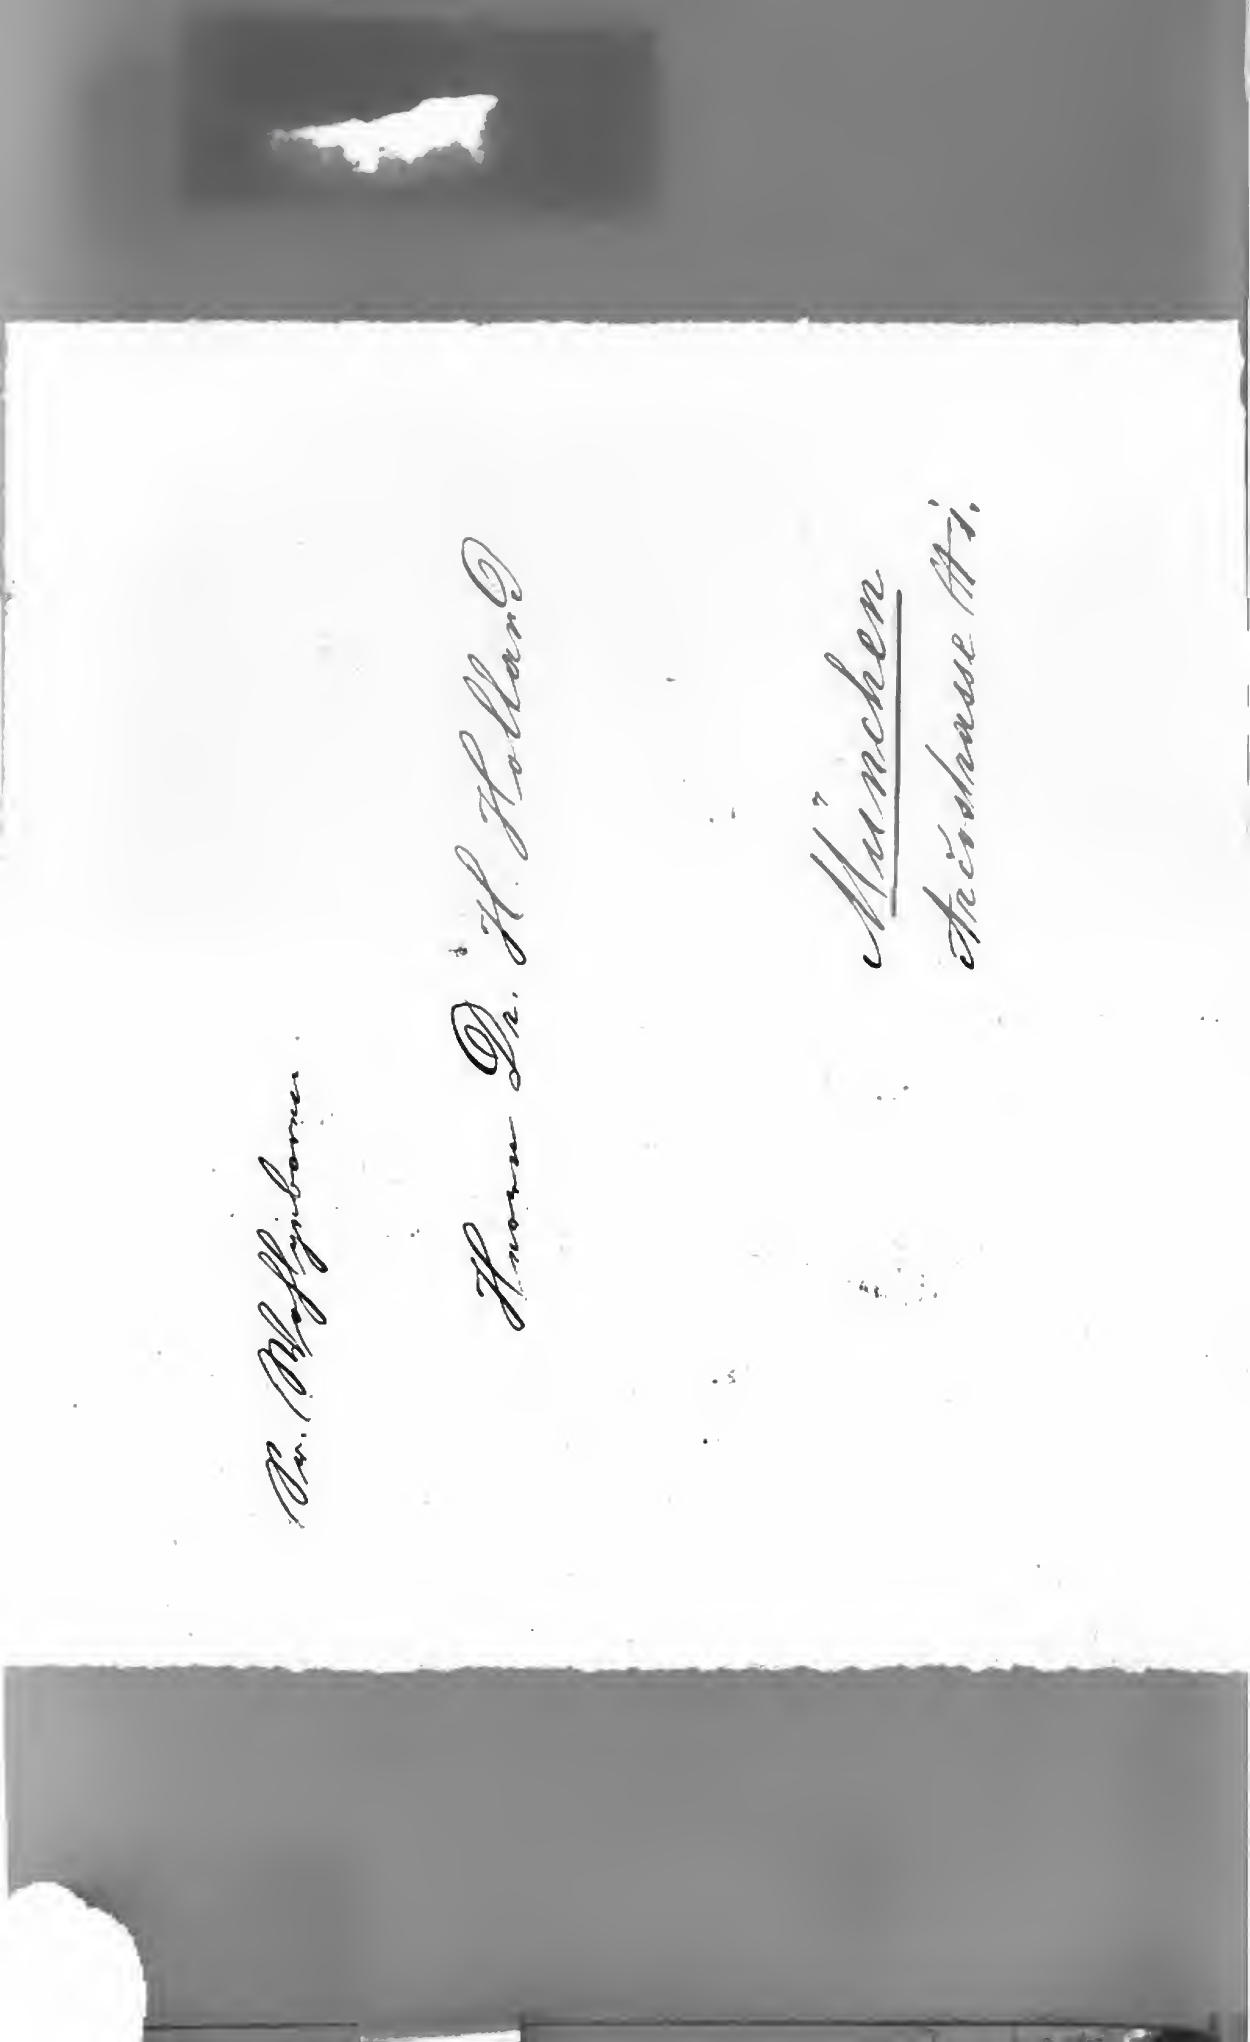 Sr. Wohlgeboren
Herrn Dr. H. Holland
München
Arcisstrasse